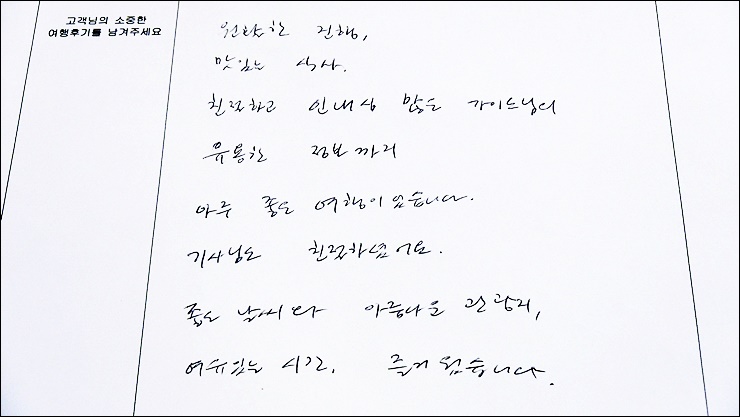 고객님의 소중한
여행후기를 남겨주세요
원활한 진행,
맛있는 식사.
친절하고 인내심 많은 가이드님의
유용한 정보까지
아주 좋은 여행이었습니다.
기사님도 친절하셨어요.
좋은 날씨와 아름다운 관광지,
여유있는 시간. 즐거웠습니다.